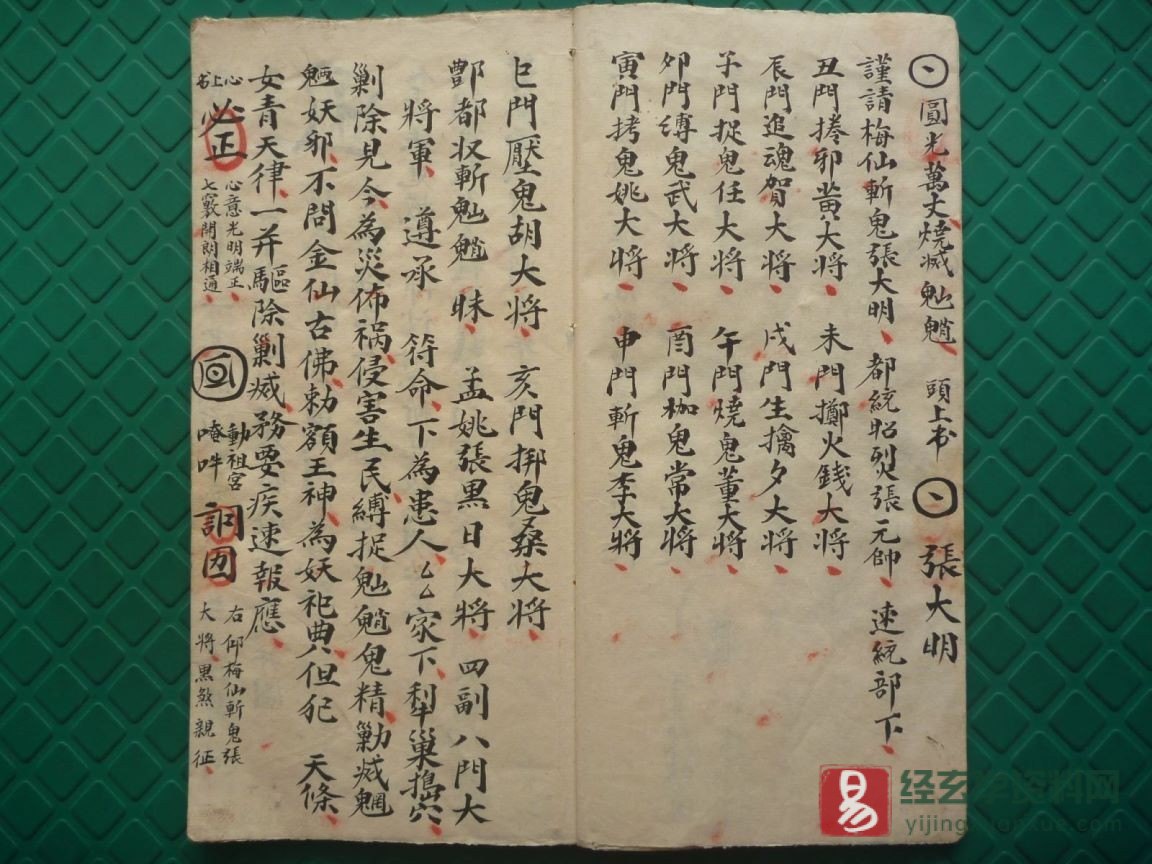 圓光萬丈燒滅魈 頭上书 張大明
謹請梅仙斬鬼張大明 都統昭烈張元帥 速統部下
丑門捲邪黃大將 未門擲火錢大將
辰門追魂賀大將 戌門生擒夕大將
子門捉鬼任大將 午門燒鬼董大將
夘門縛鬼武大將 酉門枷鬼常大將
寅門拷鬼姚大將 申門斬鬼李大將
巳門壓鬼胡大將 亥門掤鬼桑大將
酆都收斬魈 昧 孟姚張黑日大將 四副八門大
將軍 遵承 符命下為患人厶厶家下犁巢搗穴
剿除見今為災佈祸侵害生民縛捉魈鬼精勦滅魍
魎妖邪不問金仙古佛勅額王神為妖祀典但犯 天條
女青天律一并驅除剿滅務要疾速報應
心上书
正
心意光明端正
七竅開朗相通
動祖宮
唵吽
右仰梅仙斬鬼張
大將黑煞親征
易
经玄学资料网
yijingxuanxue.com